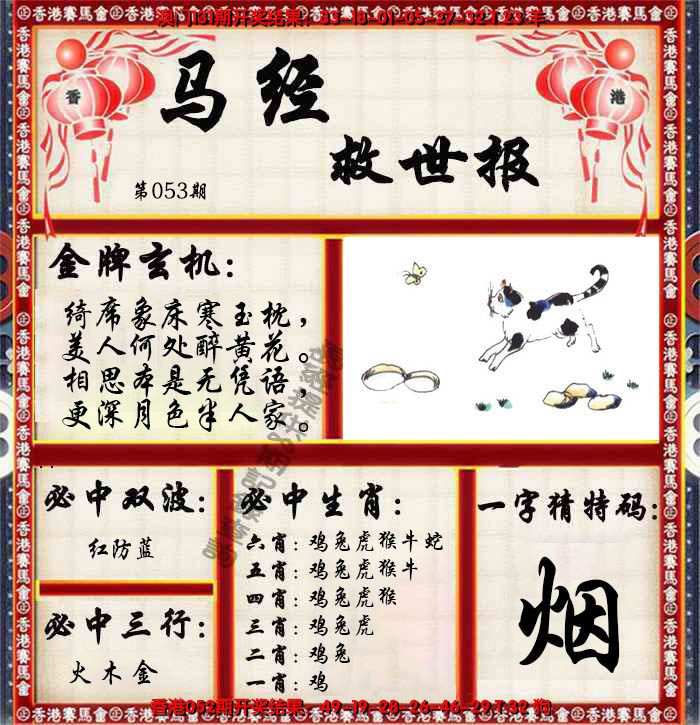 澳门131期开奖结果：33-18-01-05-27-32 T 23 羊
香
港
马经
救世报
第053期
金牌玄机：
绮席象床寒玉枕，
美人何处醉黄花。
相思本是无凭语，
更深月色半人家。
必中双波：
红防蓝
必中三行：
火木金
必中生肖：
六肖：鸡兔虎猴牛蛇
五肖：鸡兔虎猴牛
四肖：鸡兔虎猴
三肖：鸡兔虎
二肖：鸡兔
一肖：鸡
一字猜特码：
烟
香港052期开奖结果：49-19-28-26-46-29 T 32 狗
香港賽馬會